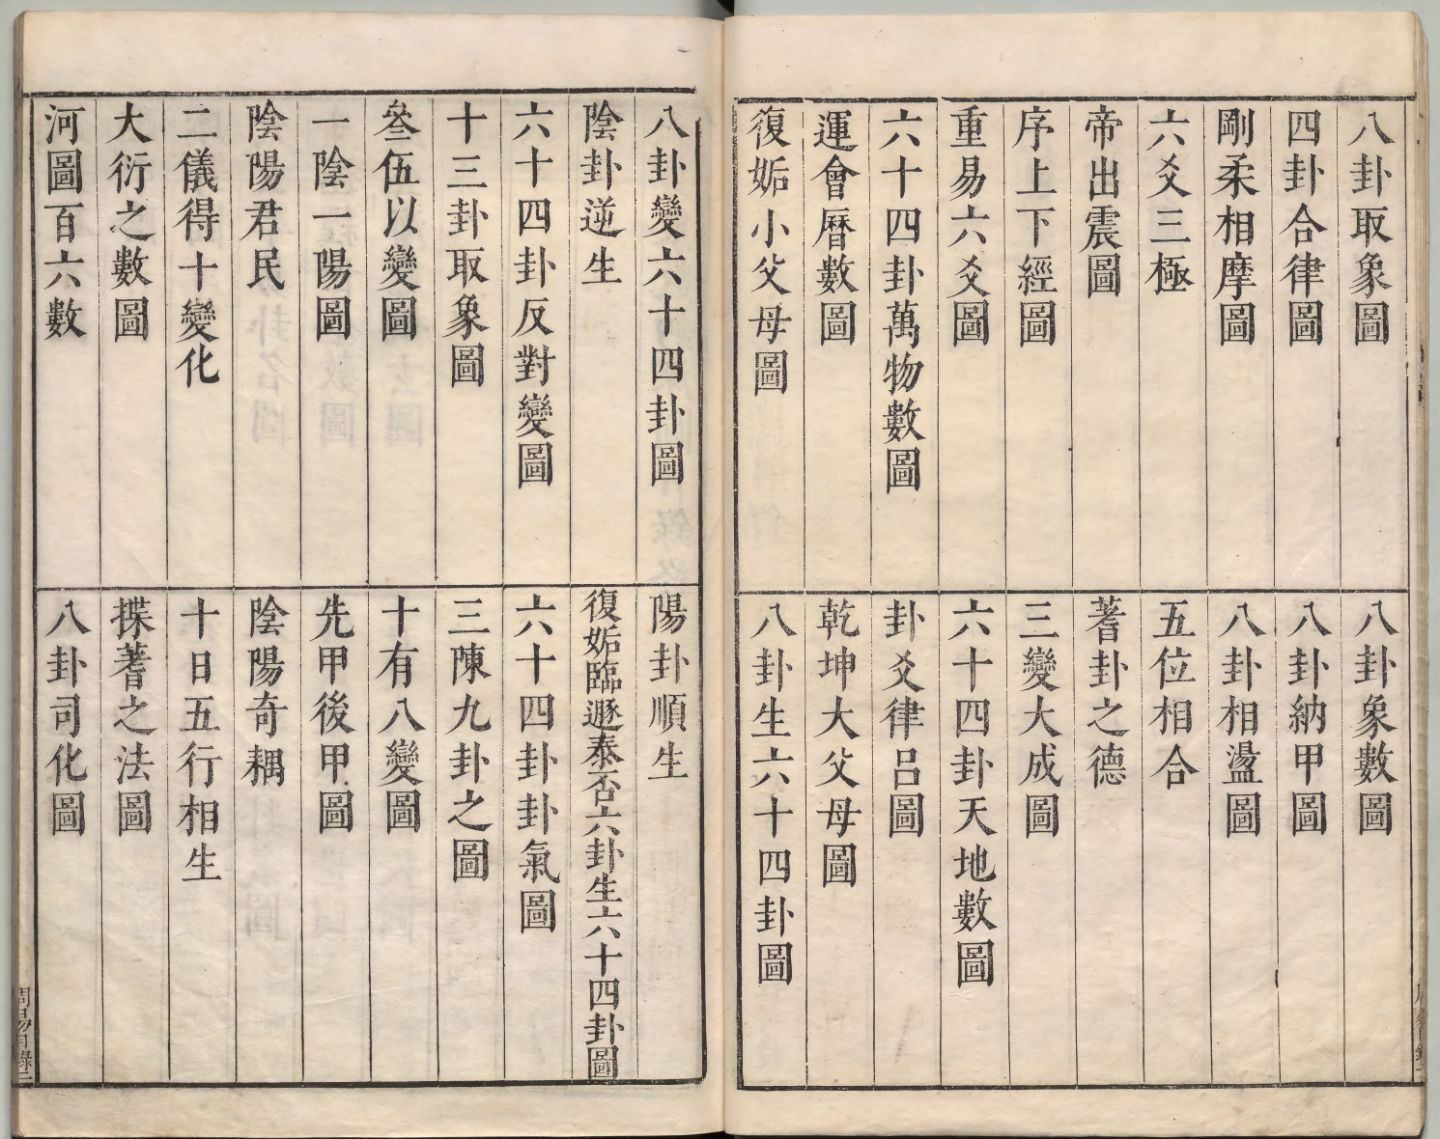 八卦取象圖
八卦象數圖
四卦合律圖
八卦納甲圖
剛柔相摩圖
八卦相盪圖
六爻三極
五位相合
帝出震圖
蓍卦之德
序上下經圖
三變大成圖
重易六爻圖
六十四卦天地數圖
六十四卦萬物數圖
卦爻律呂圖
運會曆數圖
乾坤大父母圖
復姤小父母圖
八卦生六十四卦圖
八卦變六十四卦圖
陽卦順生
陰卦逆生
復姤臨遯泰否六卦生六十四卦圖
六十四卦反對變圖
六十四卦卦氣圖
十三卦取象圖
三陳九卦之圖
叅伍以變圖
十有八變圖
一陰一陽圖
先甲後甲圖
陰陽君民
陰陽奇耦
二儀得十變化
十日五行相生
大衍之數圖
揲蓍之法圖
河圖百六數
八卦司化圖
周易目錄